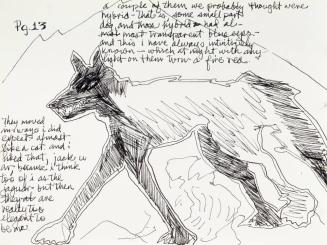 a couple of them we probably thought were
Pg. 13
hybrid - that is some small part
dog and those hybrid had al-
most most transparent blue eyes -
and this i have always intuitively
known - which at night with any
light on them turn a fire red.
they moved
in ways i did
expect almost
like a cat and i
liked that, jack w
ar, because i think
too of i as the
jaguar - but then
they at are
really too
elegant to
be me